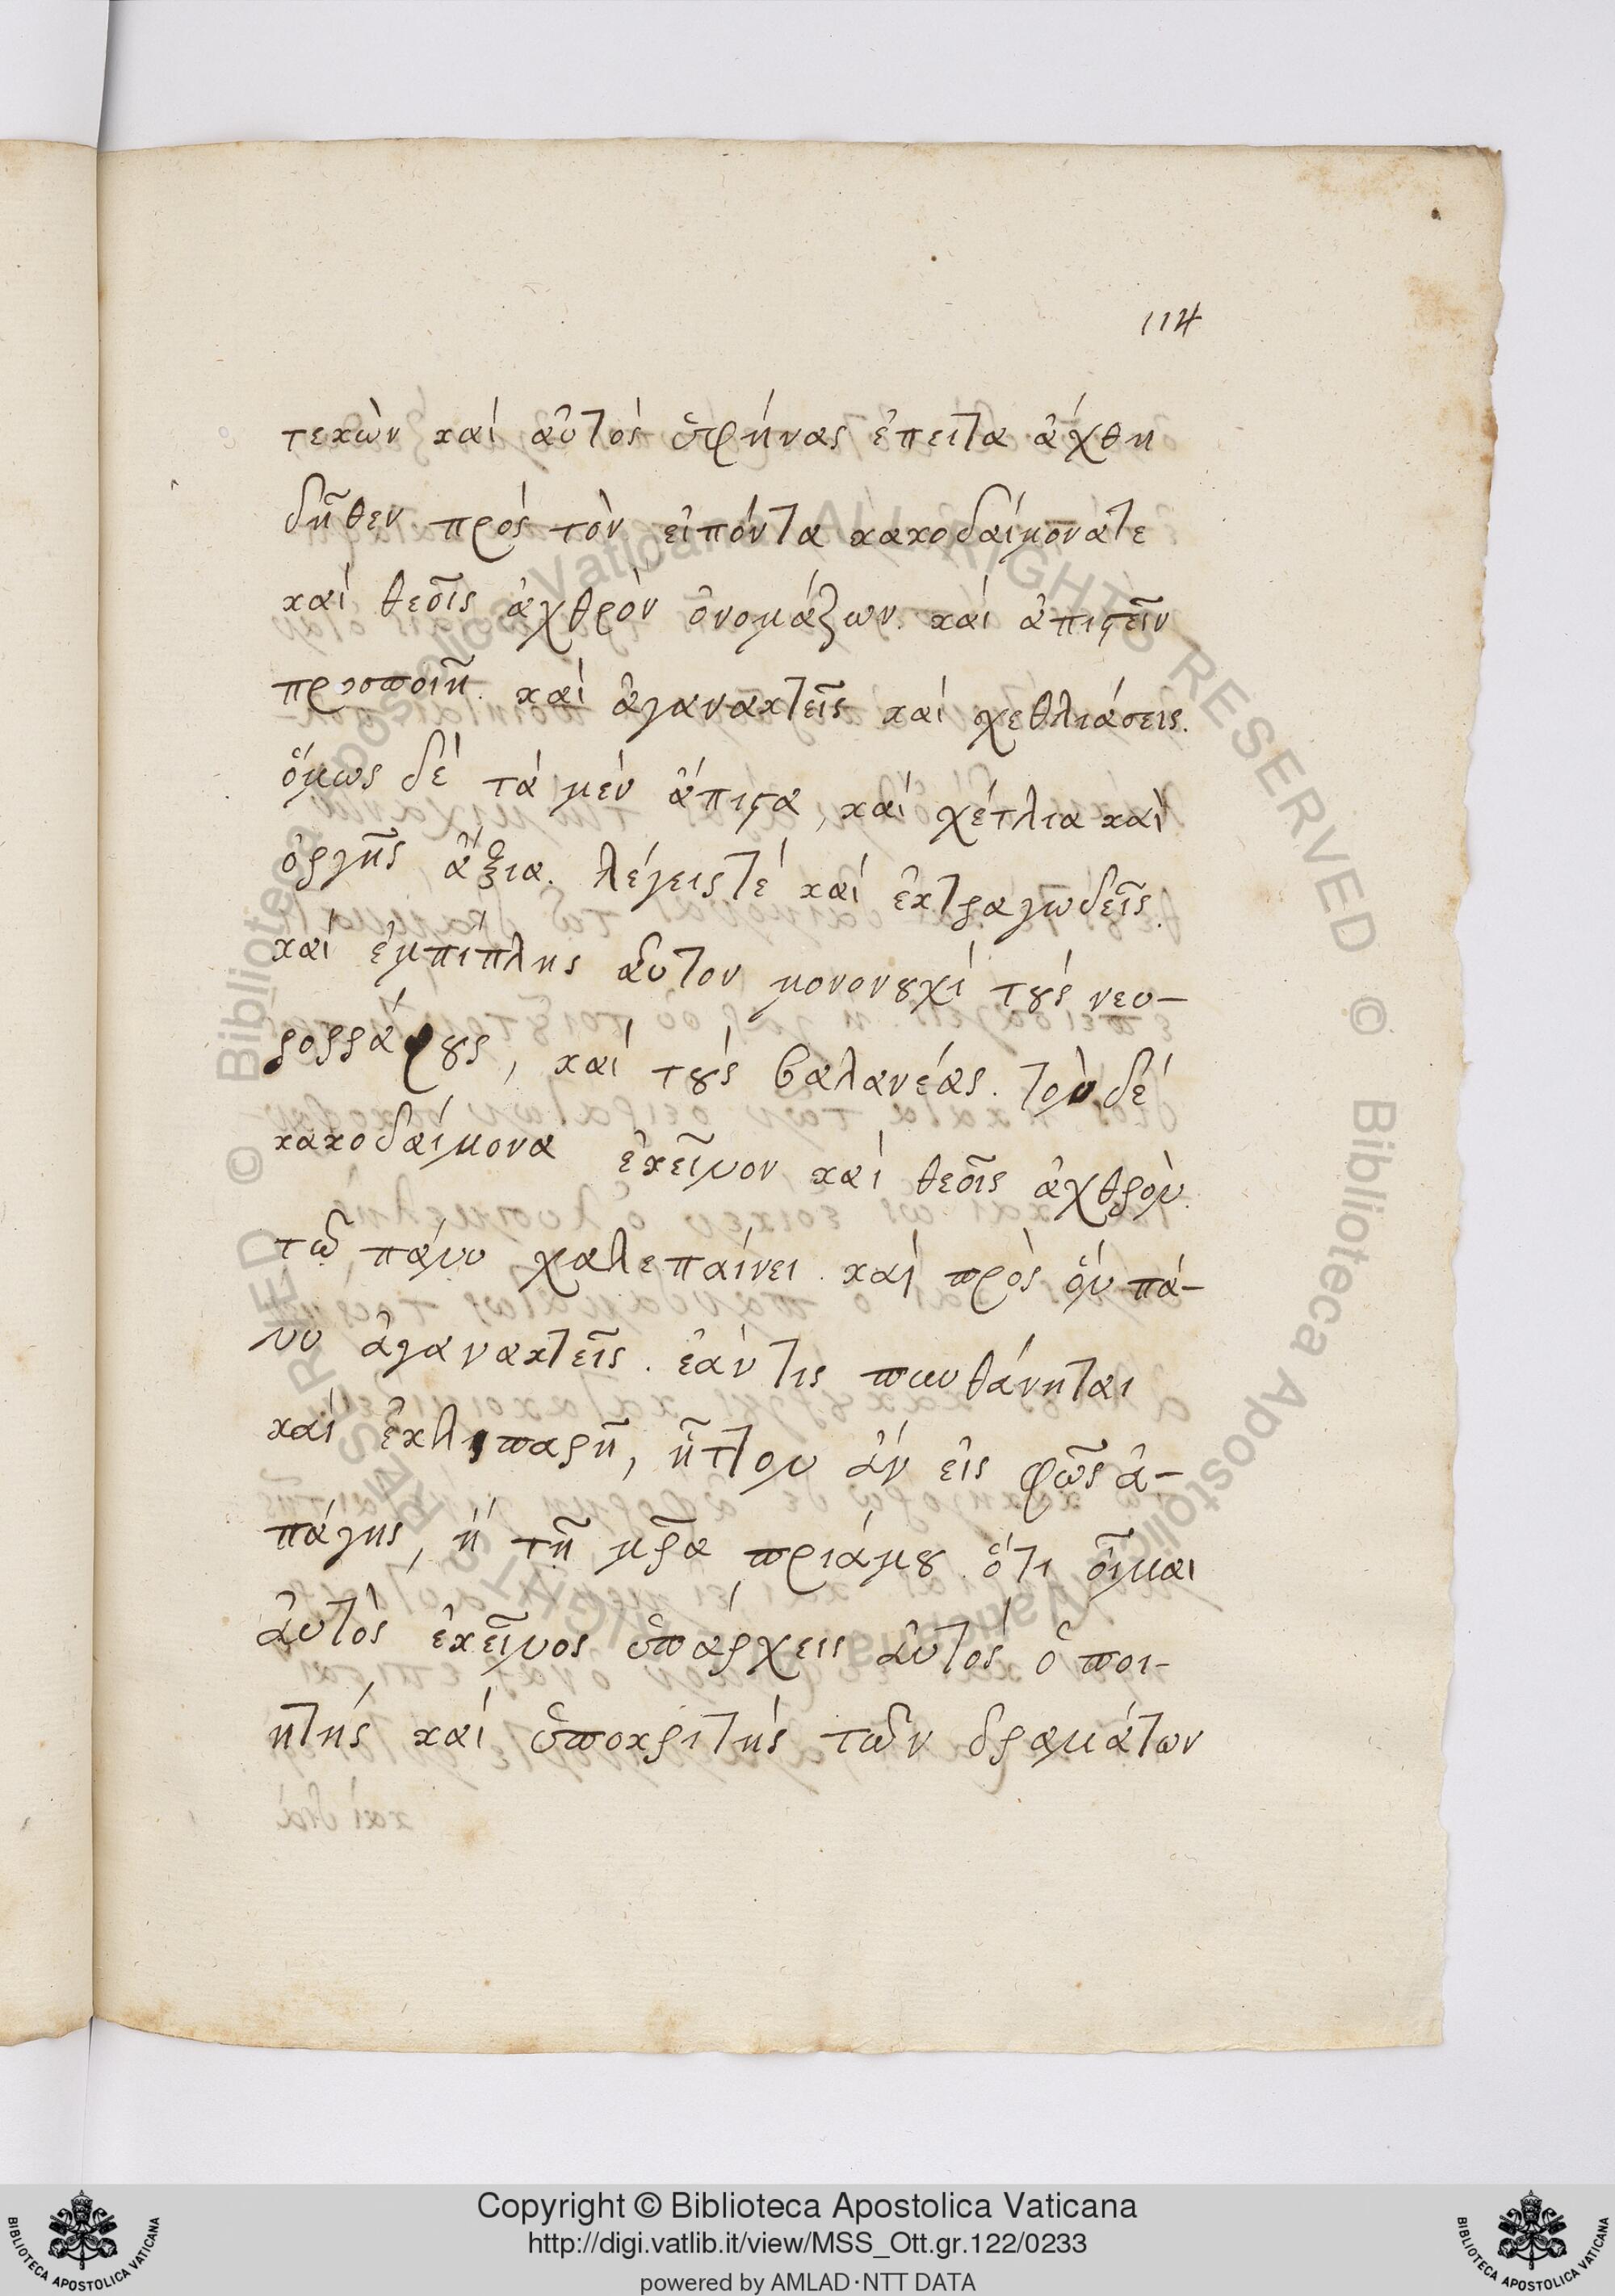 114
τεκὼν καὶ αὐτὸς ὑφήνας ἔπειτα ἄχθη
δῆθεν πρὸς τὸν εἰπόντα κακοδαίμονάτε
καὶ θεοῖς ἀχθρὸν ὀνομάζων. καὶ ἀπιϛεῖν
προσποιῆ. καὶ ἀγανακτεῖς καὶ χεθλιάσεις.
ὅμως δὲ τὰ μὲν ἄπιϛα, καὶ χέτλια καὶ
ὀργῆς ἄξια. λέγειςτὲ καὶ ἐκτραγωδεῖς.
καὶ ἐμπίπλης αὐτον μονονȣχὶ τȣ̀ς νευ-
ρορράφȣς, καὶ τȣ̀ς βαλανέας. τὸν δὲ
κακοδαίμονα ἐκεῖνον καὶ θεοῖς ἀχθρὸν.
τῶ πάνυ χαλεπαίνει. καὶ πρὸς ὃν πά-
νυ ἀγανακτεῖς. ἐάν τις πυνθάνηται
καὶ ἐκλιπαρῆ, ἧττον ἂν εἰς φῶς ἀ-
πάγης, ἢ τῆ μρ̃α πριάμȣ. ὅτι οἶμαι
αὐτὸς ἐκεῖνος ὑπάρχεις αὐτὸς ὁ ποι-
ητὴς καὶ ὑποκριτὴς τῶν δραμάτων
Copyright © Biblioteca Apostolica Vaticana
http://digi.vatlib.it/view/MSS_Ott.gr.122/0233
powered by AMLAD·NTT DATA
BIBLIOTECA APOSTOLICA VATICANA
BIBLIOTECA APOSTOLICA VATICANA